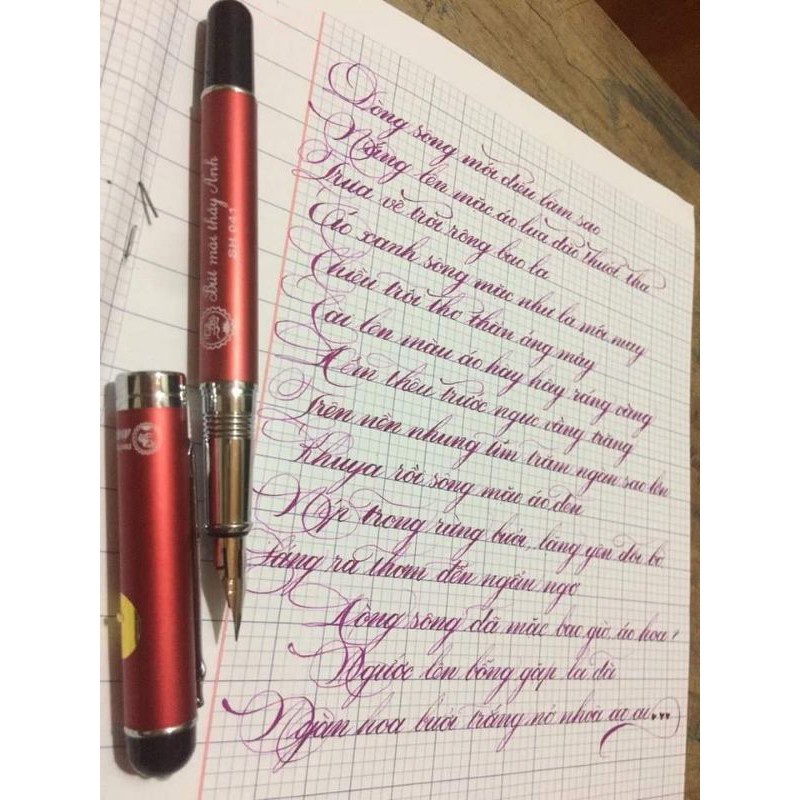 Bút mài thầy Ánh
SH 041
Dòng sông mới điệu làm sao
Nắng lên mặc áo lụa đào thướt tha
Trưa về trời rộng bao la
Áo xanh sông mặc như là mới may
Chiều trôi thơ thẩn áng mây
Cài lên màu áo hây hây ráng vàng
Đêm thêu trước ngực vầng trăng
Trên nền nhung tím trăm ngàn sao lên
Khuya rồi sông mặc áo đen
Nép trong rừng bưởi, lặng yên đôi bờ
Sáng ra thơm đến ngẩn ngơ
Dòng sông đã mặc bao giờ, áo hoa?
Ngước lên bỗng gặp la đà
Ngàn hoa bưởi trắng nở nhòa áo ai